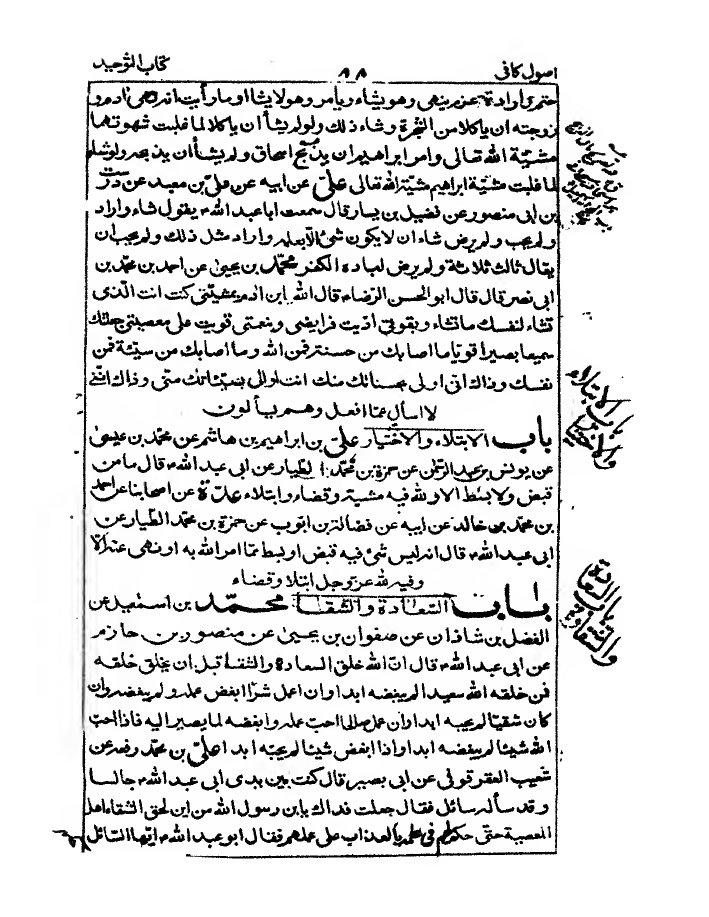 اصول كافى ٨٨ كتاب التوحيد
حتم وارادة عزم ينهى وهو يشاء ويأمر وهو لا يشاء اوما رأيت انه نهى ادم و
زوجته ان ياكلا من الشجرة وشاء ذلك ولو لم يشأ ان يأكلا لما غلبت شهوتهما
مشيّة الله تعالى وامر ابراهيم ان يذبح اسحاق ولم يشأ ان يذبحه ولو شاء
لما غلبت مشيّة ابراهيم مشيّة الله تعالى علىّ عن ابيه عن على بن معبد عن درست
بن ابى منصور عن فضيل بن يسار قال سمعت ابا عبد الله ع يقول شاء واراد
ولم يحب ولم يرض شاء ان لا يكون شئ الّا بعلمه واراد مثل ذلك ولم يحب ان
يقال ثالث ثلاثة ولم يرض لعباده الكفر محمّد بن يحيى عن احمد بن محمّد بن
ابى نصر قال قال ابو الحسن الرّضا ع قال الله ابن ادم بمشيّتى كنت انت الّذى
تشاء لنفسك ما تشاء وبقوتى ادّيت فرايضى وبنعمتى قويت على معصيتى جعلتك
سميعا بصيرا قويّا ما اصابك من حسنة فمن الله وما اصابك من سيّئة فمن
نفسك وذاك انّى اولى بحسناتك منك وانت اولى بسيّئاتك منى وذاك انّنى
لا اسأل عمّا افعل وهم يسألون
باب الابتلاء والاختيار علىّ بن ابراهيم بن هاشم عن محمّد بن عيسى
عن يونس بن عبد الرّحمن عن حمزة بن محمّد الطيار عن ابى عبد الله ع قال ما من
قبض ولا بسط الا ولله فيه مشية وقضاء وابتلاء عدّة من اصحابنا عن احمد
بن محمّد بن خالد عن ابيه عن فضالة بن ايوب عن حمزة بن محمّد الطيار عن
ابى عبد الله ع قال انه ليس شئ فيه قبض او بسط ممّا امر الله به او نهى عنه الّا
وفيه لله عزّ وجل ابتلا وقضاء
باب السّعادة والشقا محمّد بن اسمعيل عن
الفضل بن شاذان عن صفوان بن يحيى عن منصور بن حازم
عن ابى عبد الله ع قال انّ الله خلق السعادة والشقا قبل ان يخلق خلقه
فمن خلقه الله سعيدا لم يبغضه ابدا وان عمل شرّا ابغض عمله ولم يبغضه وان
كان شقيّا لم يحبه ابدا وان عمل صالحا احبّ عمله وابغضه لما يصير اليه فاذا احبّ
الله شيئا لم يبغضه ابدا واذا ابغض شيئا لم يحبّه ابدا علىّ بن محمّد رفعه عن
شعيب العقرقوفى عن ابى بصير قال كنت بين يدى ابى عبد الله ع جالسا
وقد سأله سائل فقال جعلت فداك يا بن رسول الله من اين لحق الشقاء اهل
المعصية حتّى حكم لهم فى علمه بالعذاب على عملهم فقال ابو عبد الله ع ايّها السّائل
باب الابتلاء
والاختيار
باب السعادة
والشقاوة